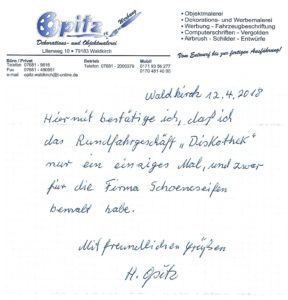 Opitz
Werbung
Dekorations- und Objektmalerei
Lilienweg 10 • 79183 Waldkirch
• Objektmalerei
• Dekorations- und Werbemalerei
• Werbung - Fahrzeugbeschriftung
• Computerschriften - Vergolden
• Airbrush - Schilder - Entwürfe
Vom Entwurf bis zur fertigen Ausführung!
Büro / Privat
Telefon: 07681 - 9816
Fax: 07681 - 490957
e-mail: opitz-waldkirch@t-online.de
Betrieb
Telefon: 07681 - 2000379
Mobil
0171 93 56 277
0170 481 40 93
Waldkirch 12.4.2018
Hiermit bestätige ich, daß ich
das Rundfahrgeschäft „Diskothek"
nur ein einziges Mal, und zwar
für die Firma Schoeneseifen
bemalt habe.
Mit freundlichen Grüßen
H. Opitz